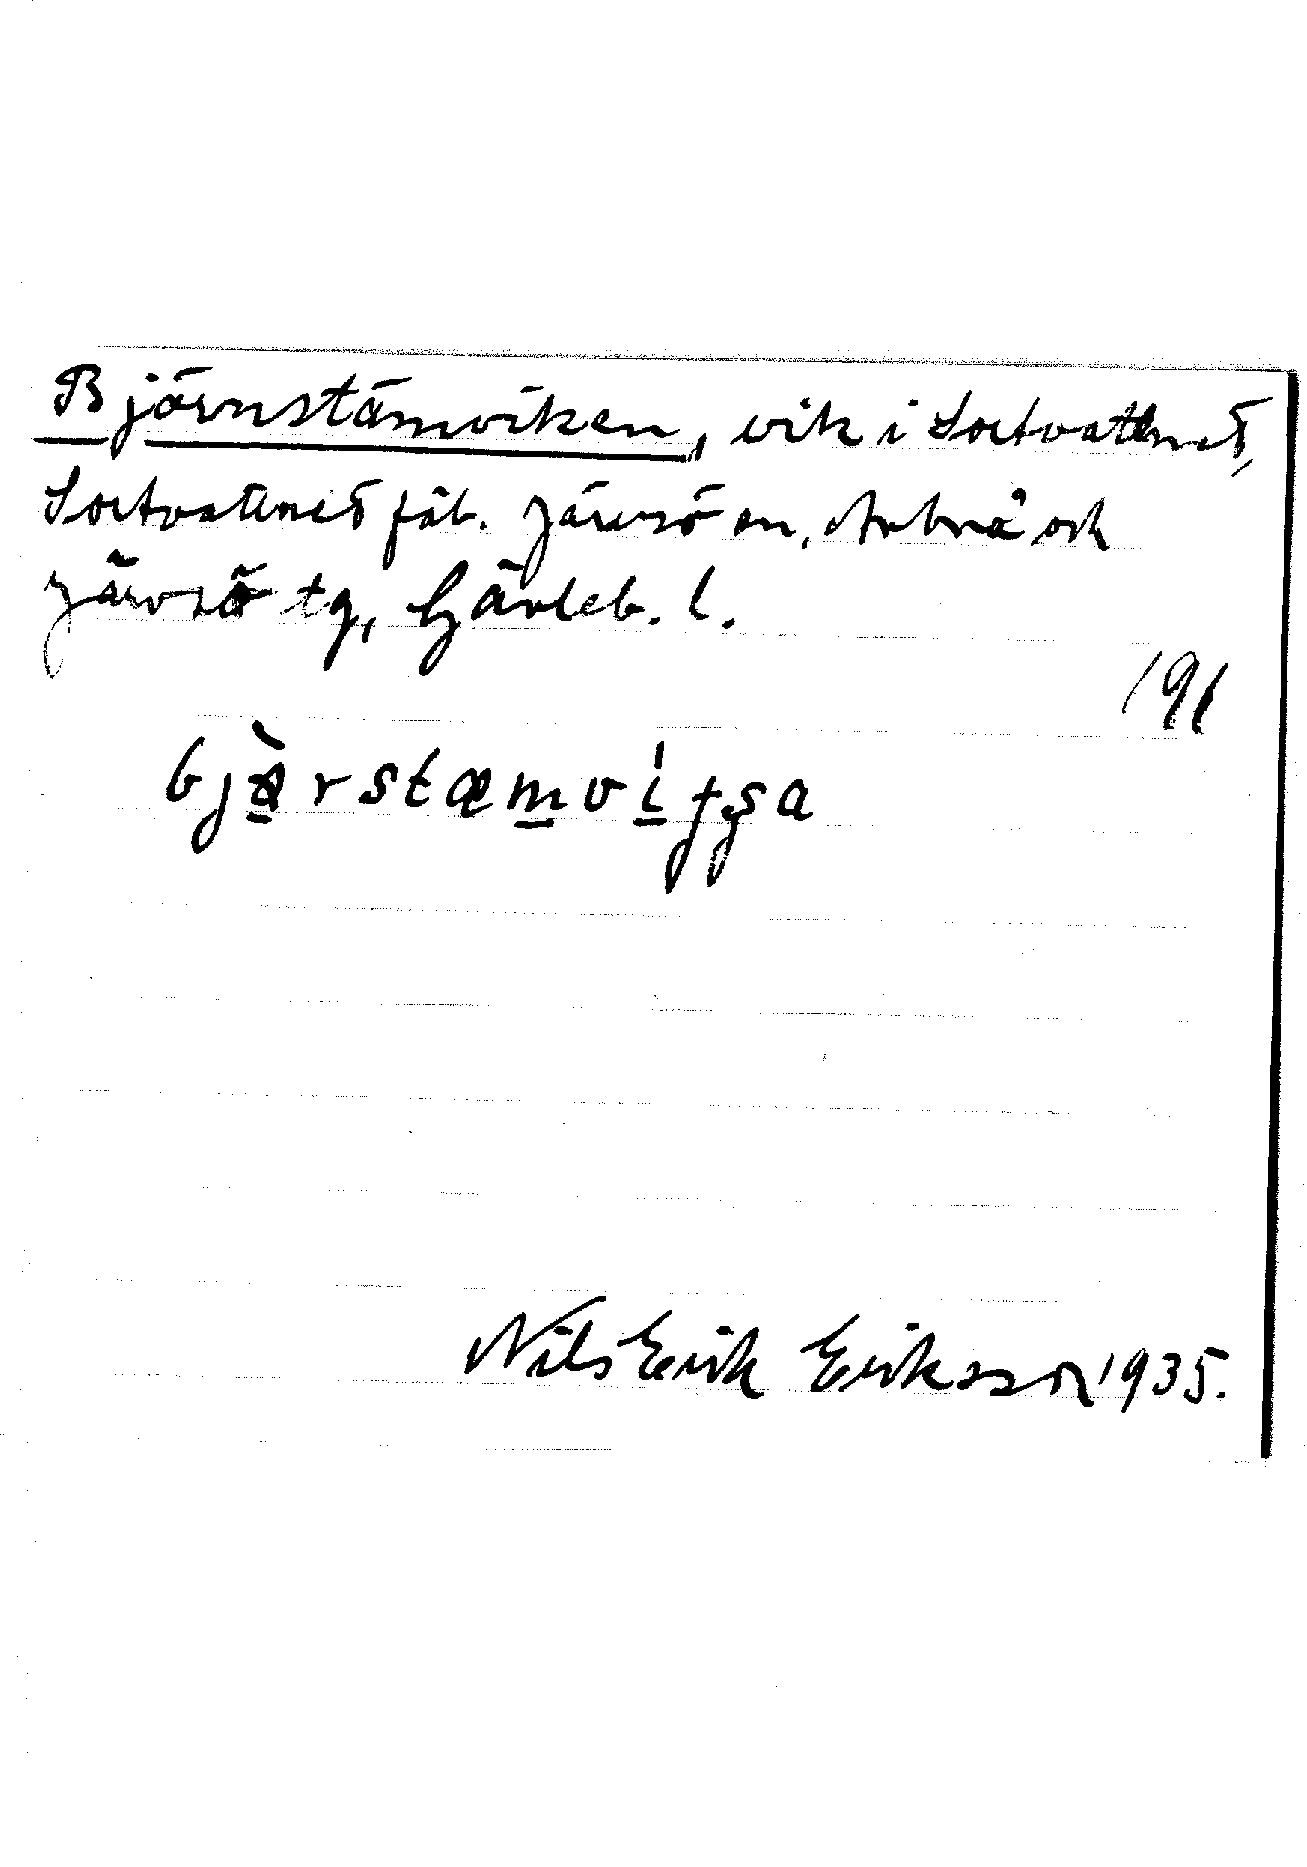 Bjärnstämviken, vik i Sortvattnet,
Sortvattnets fäb. Järvsö sn, Arbrå och
Järvsö tg, Gävleb. l.
191
bjärstæmvi
Nils Erik Eriksson 1935.